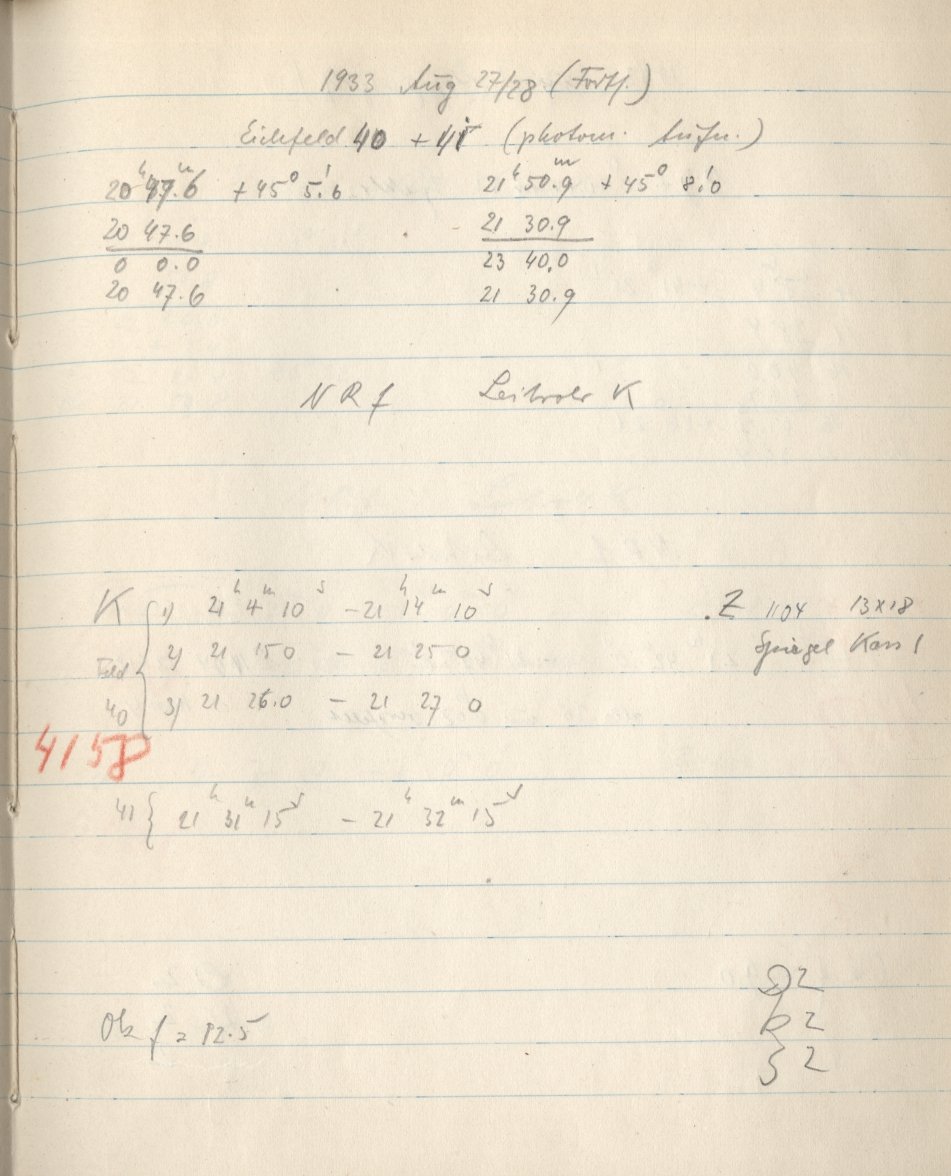 1933 Aug 27/28 (Forts.)
Eichfeld 40 + 41 (photom. Aufn.)
20ʰ 47.ᵐ6 + 45° 5.'6 21ʰ 50.ᵐ9 + 45° 8.'0
20 47.6 21 30.9
0 0.0 23 40.0
20 47.6 21 30.9
N R f Leitrohr K
K 1) 21ʰ 4ᵐ 10ˢ – 21ʰ 14ᵐ 10ˢ Z 1104 13x18
Feld 2) 21 15 0 – 21 25 0 Spiegel Kass 1
40 3) 21 26.0 – 21 27 0
4158
41 { 21ʰ 31ᵐ 15ˢ – 21ʰ 32ᵐ 15ˢ
2
Ok f = 12.5 R 2
S 2